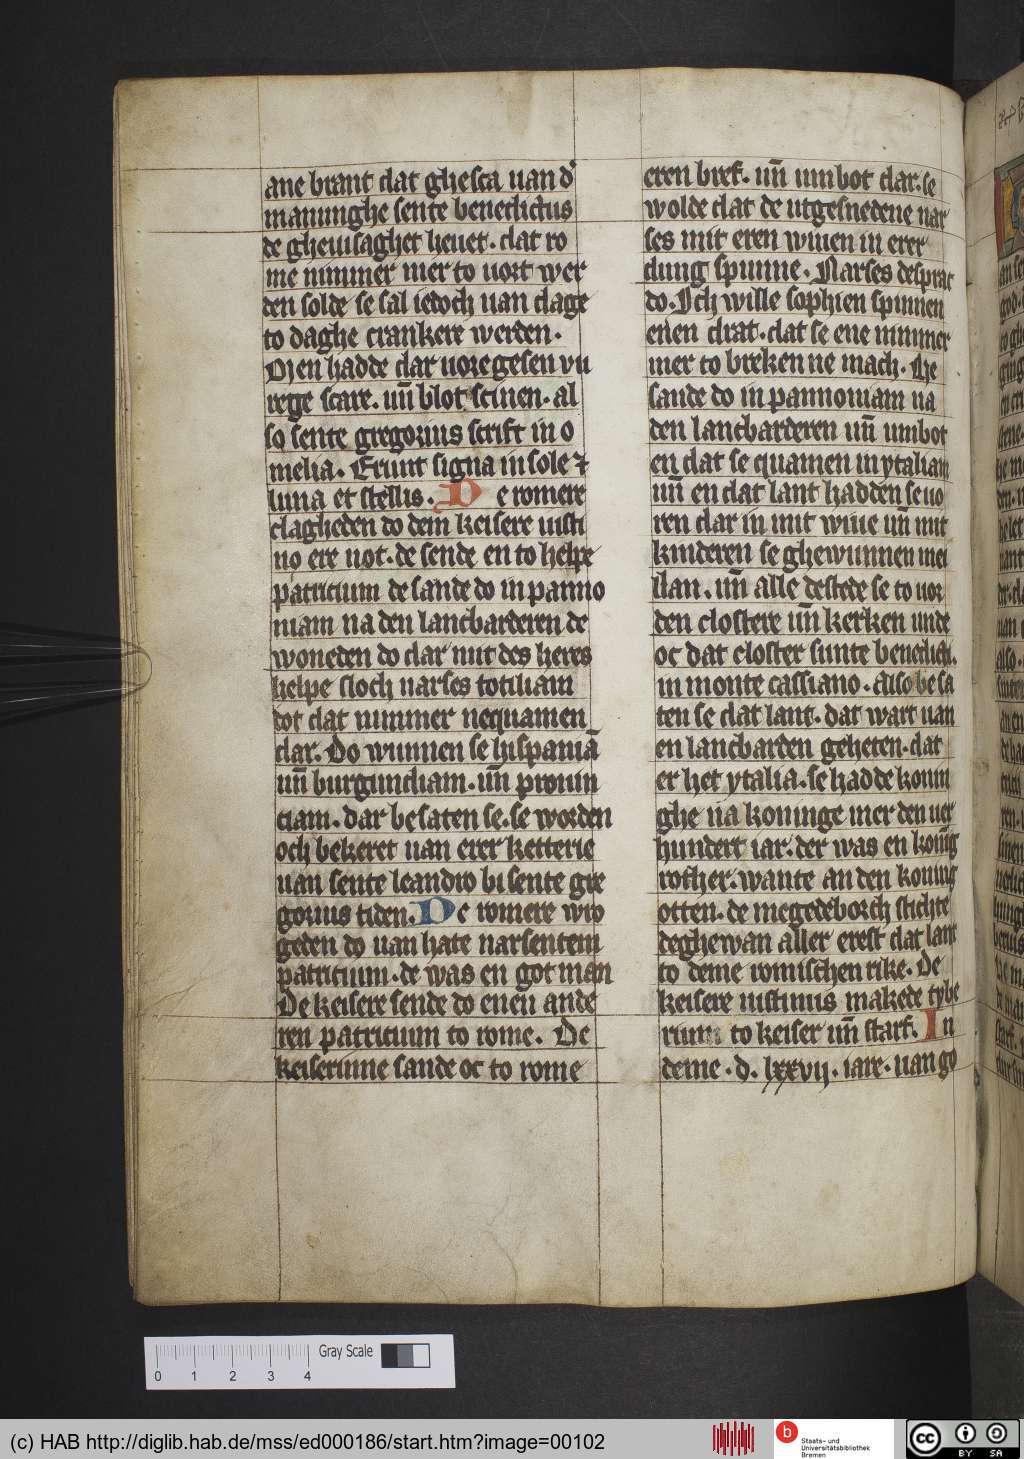 ane brant dat ghesca uan d'
manunghe sente benedictus
de ghewisaghet heuet. dat ro
me nimmer mer to uort wer
den solde se sal ietoch uan dage
to daghe crankere werden.
Men hadde dar uore gesen vu
rege scare. uñ blot scinen. al
so sente gregorius scrift in o
melia. Erunt signa in sole ⁊
luna et stellis. De romere
clagheden do dem keisere iusti
no ere not. de sende en to helpe
patricium de sande do in panno
niam na den lancbarderen de
woneden do dar mit des heres
helpe sloch narses totiliam
dot dat nummer nequamen
dar. Do wunnen se hispaniā
uñ burgundiam. uñ prouin
ciam. dar besaten se. se worden
och bekeret uan erer ketterie
uan sente leandro bi sente gre
gorius tiden. De romere wro
geden do uan hate narsentem
patricium. de was en got man
De keisere sende do enen ande
ren patricium to rome. De
keiserinne sande oc to rome
eren bref. uñ umbot dar. se
wolde dat de utgesnedene nar
ses mit eren wiuen in erer
dung spunne. Narses desprac
do. Ich wille sophien spinnen
enen drat. dat se ene nimmer
mer to breken ne mach. He
sande do in pannoniam na
den lancbarderen uñ umbot
en dat se quamen in ytaliam
uñ en dat lant hadden se uo
ren dar in mit wiue uñ mit
kinderen se ghewunnen mei
lan. uñ alle de stede se to uor
den clostere uñ kerken unde
oc dat closter sunte benedicti.
in monte cassiano. Also be sa
ten se dat lant. dat wart uan
en lancbarden geheten. dat
er het ytalia. se hadde konin
ghe na koninge mer den uer
hundert iar. der was en koñig
rother. wante an den koning
otten. de megedeborch stichte
deghewan aller erest dat lant
to deme romischen rike. De
keisere iustinus makede tybe
rium to keiser uñ starf. In
deme. d. lxxvij. iare. uan go
Gray Scale
0 1 2 3 4
(c) HAB http://diglib.hab.de/mss/ed000186/start.htm?image=00102
Staats- und
Universitätsbibliothek
Bremen
CC BY SA